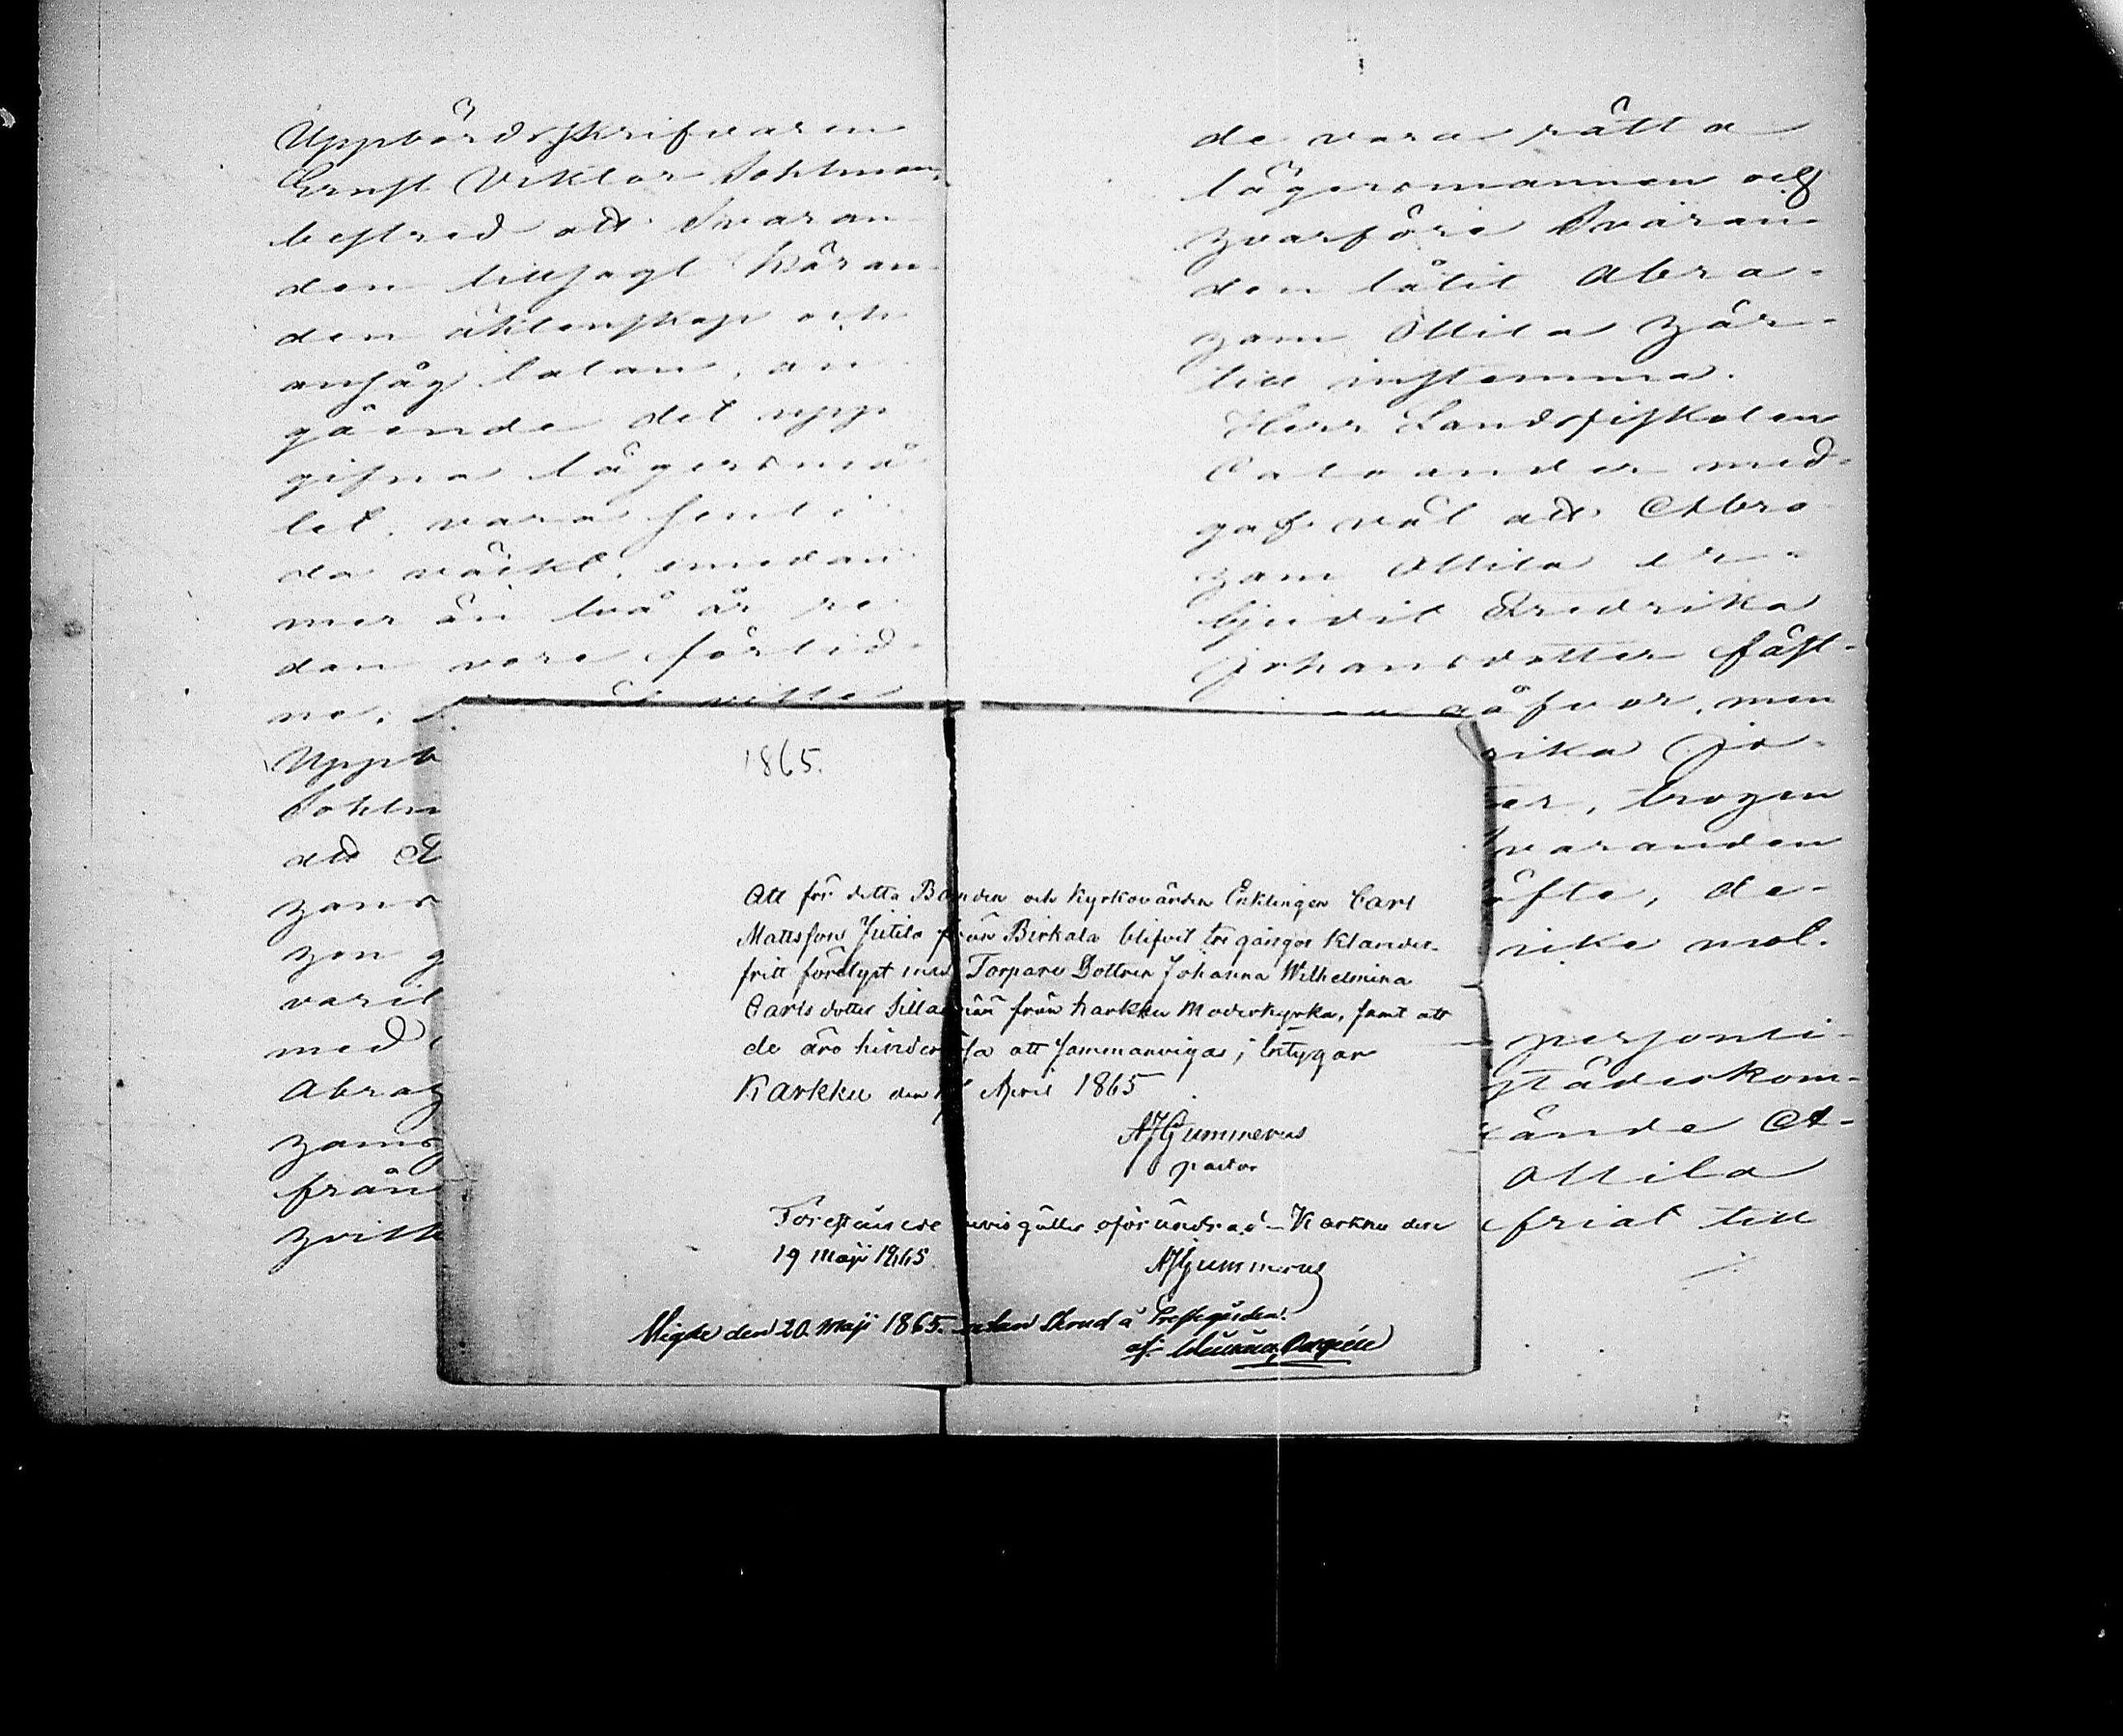 Uppbördsskrifvaren
Ernst Viktor Sohlman
bestred att Svaran
den tillsagt Käran-
den äktenskap och
ansåg talan, an
gående det upp
gifna lägersmå
let, vara senti
da väckt, emedan
mer än två år re
dan vore förlid-
na,
Uppb
Sohlm
att A
zans
zon g
varit
med
Abraz
zams
från
zvitt
de vara rätta
lägersmannen och
zvarföre Svaran
den låtit Abra-
zam Ollila zär-
till instemma.
Herr Landsfiskalen
Calvander med-
gaf väl att Abra
zam Ollila er-
bjudit Fredrika
Johansdotter fäst-
gåfvor, men
rika Jo-
ter, trozen
varanden
öfte, de-
rika mot.
personli-
städeskom-
ände A-
Ollila
friat till
1865.
Att för detta Bonden och Kyrkovärden Enklingen Carl
Mattsson Jutila från Birkala blifvit tre gånger klander-
fritt förelyst med Torpare Dottren Johanna Wilhelmina
Carlsdotter från Karkku Moderkyrka, samt att
de äro hinderslösa att sammanvigas; intygar
Karkku den April 1865
AJGummerus
pastor
Förestående bevis gäller oförändrad – Karkku den
19 Maji 1865.
AJGummerus
Vigde den 20. Maji 1865. utan Skrud å Prestgården.
af